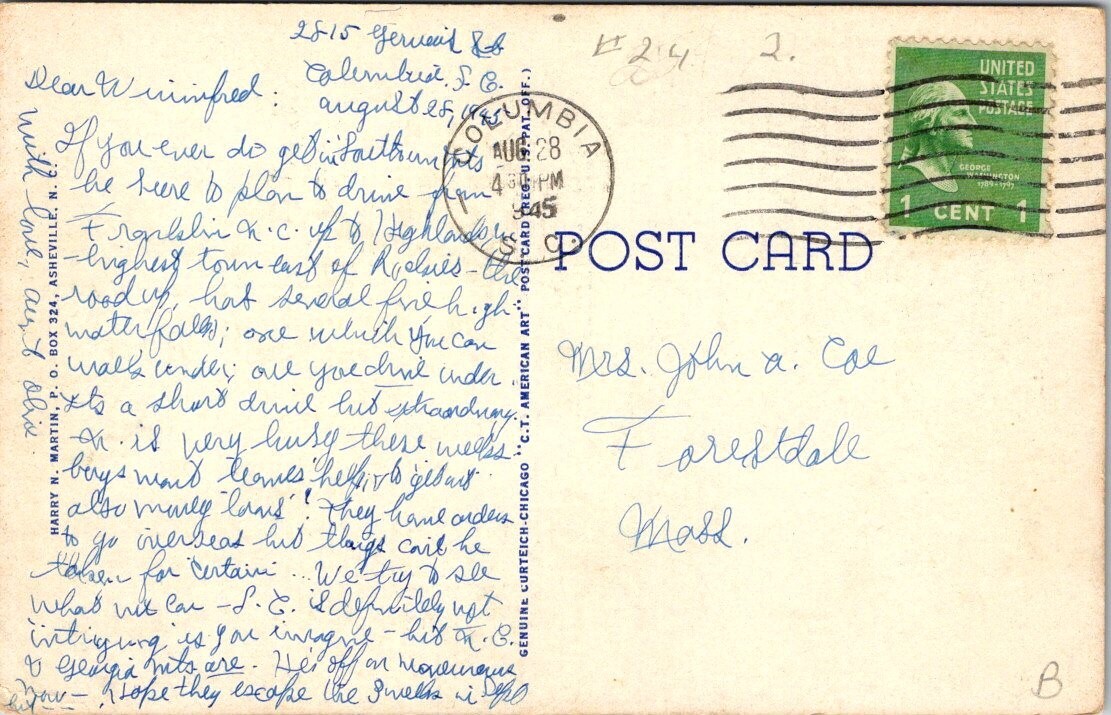 2815 Gervais St
Columbia S. C.
August 28, 1945
Dear Winnifred:
If you ever do get in Southern mts
be sure to plan to drive from
Franklin N.C. up to Highlands
- highest town east of Rockies - the
road up, has several fine high
waterfalls; one which you can
walk under; one you drive under.
Its a short drive but extraordinary.
is very busy these weeks
boys want leaves, help, to get out
also money 'loans'! They have orders
to go overseas but things can't be
taken for certain... We try to see
what we can - S. C. is definitely not
'intriguing' as you imagine - but N. C.
& Georgia mts are. He's off on maneuvers
now - Hope they escape the 3 weeks in Sept
with love, aunt Olive
HARRY N. MARTIN, P. O. BOX 324, ASHEVILLE, N. C.
GENUINE CURTEICH-CHICAGO "C.T. AMERICAN ART" POST CARD (REG. U.S. PAT. OFF.)
#24 2.
COLUMBIA
AUG 28
4 30 PM
1945
S. C.
UNITED
STATES
POSTAGE
GEORGE
WASHINGTON
1789-1797
1 CENT 1
POST CARD
Mrs. John A. Coe
Forestdale
Mass.
B